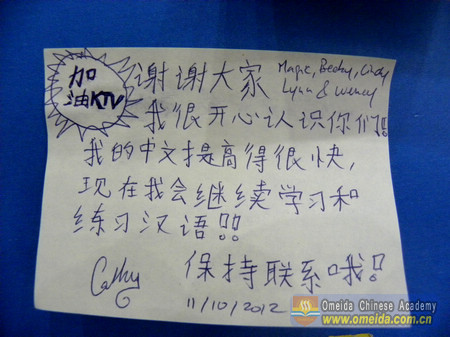 加
油KTV
谢谢大家 Magic, Becky, Cindy
Lynn & Wency
我很开心认识你们!!
我的中文提高得很快,
现在我会继续学习和
练习汉语!!
Cathy 保持联系哦!
11/10/2012
Omeida Chinese Academy
www.omeida.com.cn